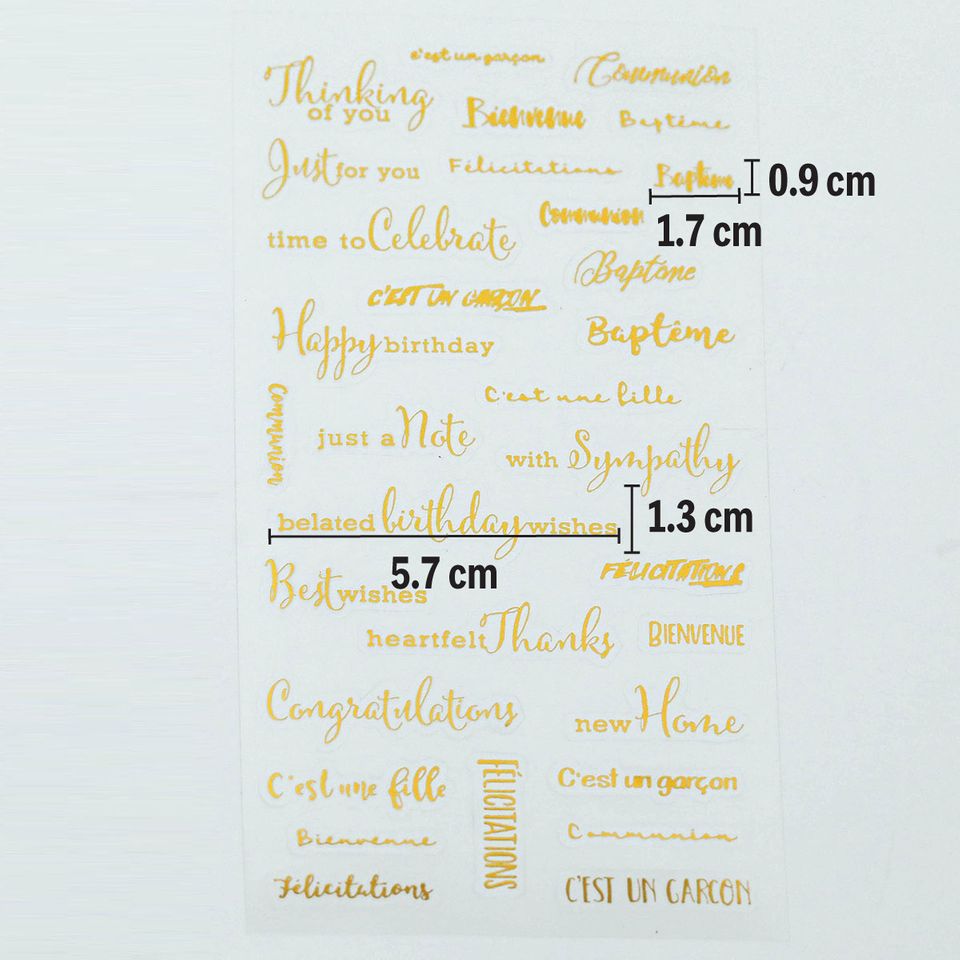 c'est un garçon
Communion
Thinking
of you
Bienvenue
Baptême
Just for you
Félicitations
Baptême
0.9 cm
1.7 cm
Communion
time to Celebrate
Baptême
C'EST UN GARÇON
Happy birthday
Baptême
C'est une fille
Communion
just a Note
with Sympathy
belated birthday wishes
1.3 cm
5.7 cm
Best wishes
FÉLICITATIONS
heartfelt Thanks
BIENVENUE
Congratulations
new Home
C'est une fille
FÉLICITATIONS
C'est un garçon
Bienvenue
Communion
Félicitations
C'EST UN GARCON